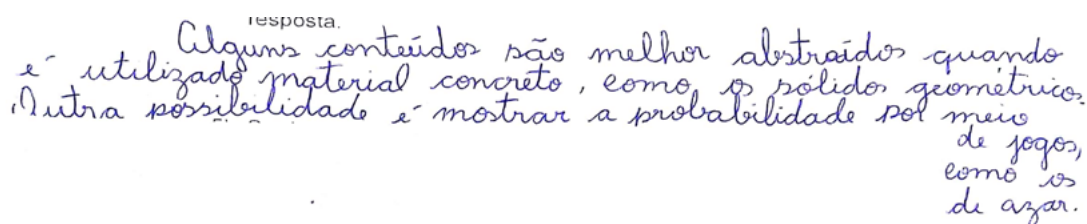 resposta.
Alguns conteúdos são melhor abstraídos quando
é utilizado material concreto, como os sólidos geométricos.
Outra possibilidade é mostrar a probabilidade por meio
de jogos,
como os
de azar.